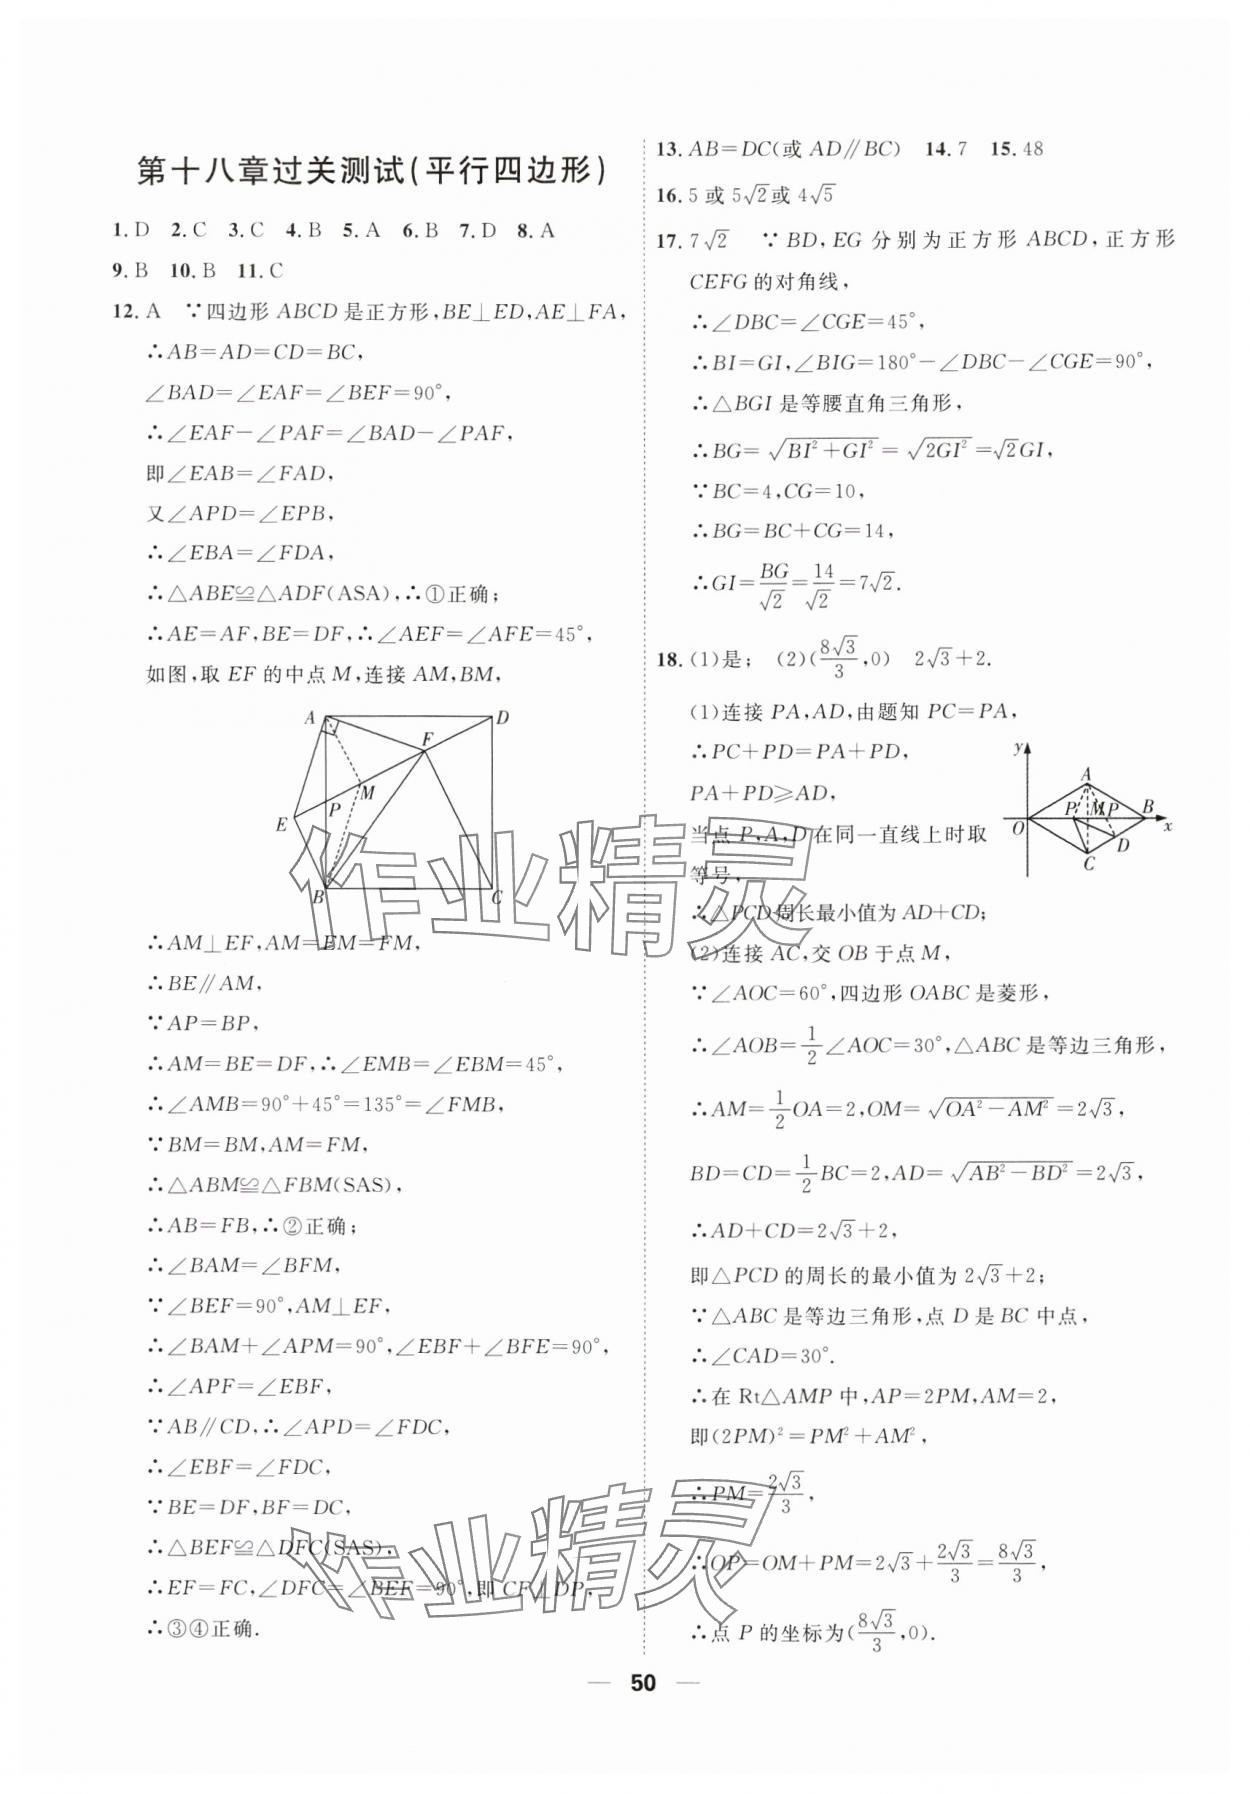 第十八章过关测试(平行四边形)
1.D 2.C 3.C 4.B 5.A 6.B 7.D 8.A
9.B 10.B 11.C
12.A ∵四边形 ABCD 是正方形,BE⊥ED,AE⊥FA,
∴AB=AD=CD=BC,
∠BAD=∠EAF=∠BEF=90°,
∴∠EAF-∠PAF=∠BAD-∠PAF,
即∠EAB=∠FAD,
又∠APD=∠EPB,
∴∠EBA=∠FDA,
∴△ABE≌△ADF(ASA),∴①正确;
∴AE=AF,BE=DF,∴∠AEF=∠AFE=45°,
如图,取 EF 的中点 M,连接 AM,BM,
A D
F
M
P
E
B C
∴AM⊥EF,AM=EM=FM,
∴BE∥AM,
∵AP=BP,
∴AM=BE=DF,∴∠EMB=∠EBM=45°,
∴∠AMB=90°+45°=135°=∠FMB,
∵BM=BM,AM=FM,
∴△ABM≌△FBM(SAS),
∴AB=FB,∴②正确;
∴∠BAM=∠BFM,
∵∠BEF=90°,AM⊥EF,
∴∠BAM+∠APM=90°,∠EBF+∠BFE=90°,
∴∠APF=∠EBF,
∵AB∥CD,∴∠APD=∠FDC,
∴∠EBF=∠FDC,
∵BE=DF,BF=DC,
∴△BEF≌△DFC(SAS),
∴EF=FC,∠DFC=∠BEF=90°,即 CF⊥DP,
∴③④正确.
13.AB=DC(或 AD∥BC) 14.7 15.48
16.5 或 5√2或 4√5
17.7√2 ∵BD,EG 分别为正方形 ABCD,正方形
CEFG 的对角线,
∴∠DBC=∠CGE=45°,
∴BI=GI,∠BIG=180°-∠DBC-∠CGE=90°,
∴△BGI 是等腰直角三角形,
∴BG=√(BI²+GI²)=√(2GI²)=√2GI,
∵BC=4,CG=10,
∴BG=BC+CG=14,
∴GI=BG/√2=14/√2=7√2.
18.(1)是; (2)(8√3/3,0) 2√3+2.
(1)连接 PA,AD,由题知 PC=PA,
∴PC+PD=PA+PD,
PA+PD⩾AD,
当点 P,A,D 在同一直线上时取
等号,
y
A
P M P B
O x
D
C
∴△PCD 周长最小值为 AD+CD;
(2)连接 AC,交 OB 于点 M,
∵∠AOC=60°,四边形 OABC 是菱形,
∴∠AOB=1/2∠AOC=30°,△ABC 是等边三角形,
∴AM=1/2OA=2,OM=√(OA²-AM²)=2√3,
BD=CD=1/2BC=2,AD=√(AB²-BD²)=2√3,
∴AD+CD=2√3+2,
即△PCD 的周长的最小值为 2√3+2;
∵△ABC 是等边三角形,点 D 是 BC 中点,
∴∠CAD=30°.
∴在 Rt△AMP 中,AP=2PM,AM=2,
即(2PM)²=PM²+AM²,
∴PM=2√3/3,
∴OP=OM+PM=2√3+2√3/3=8√3/3,
∴点 P 的坐标为(8√3/3,0).
作业精灵
作业精灵
— 50 —